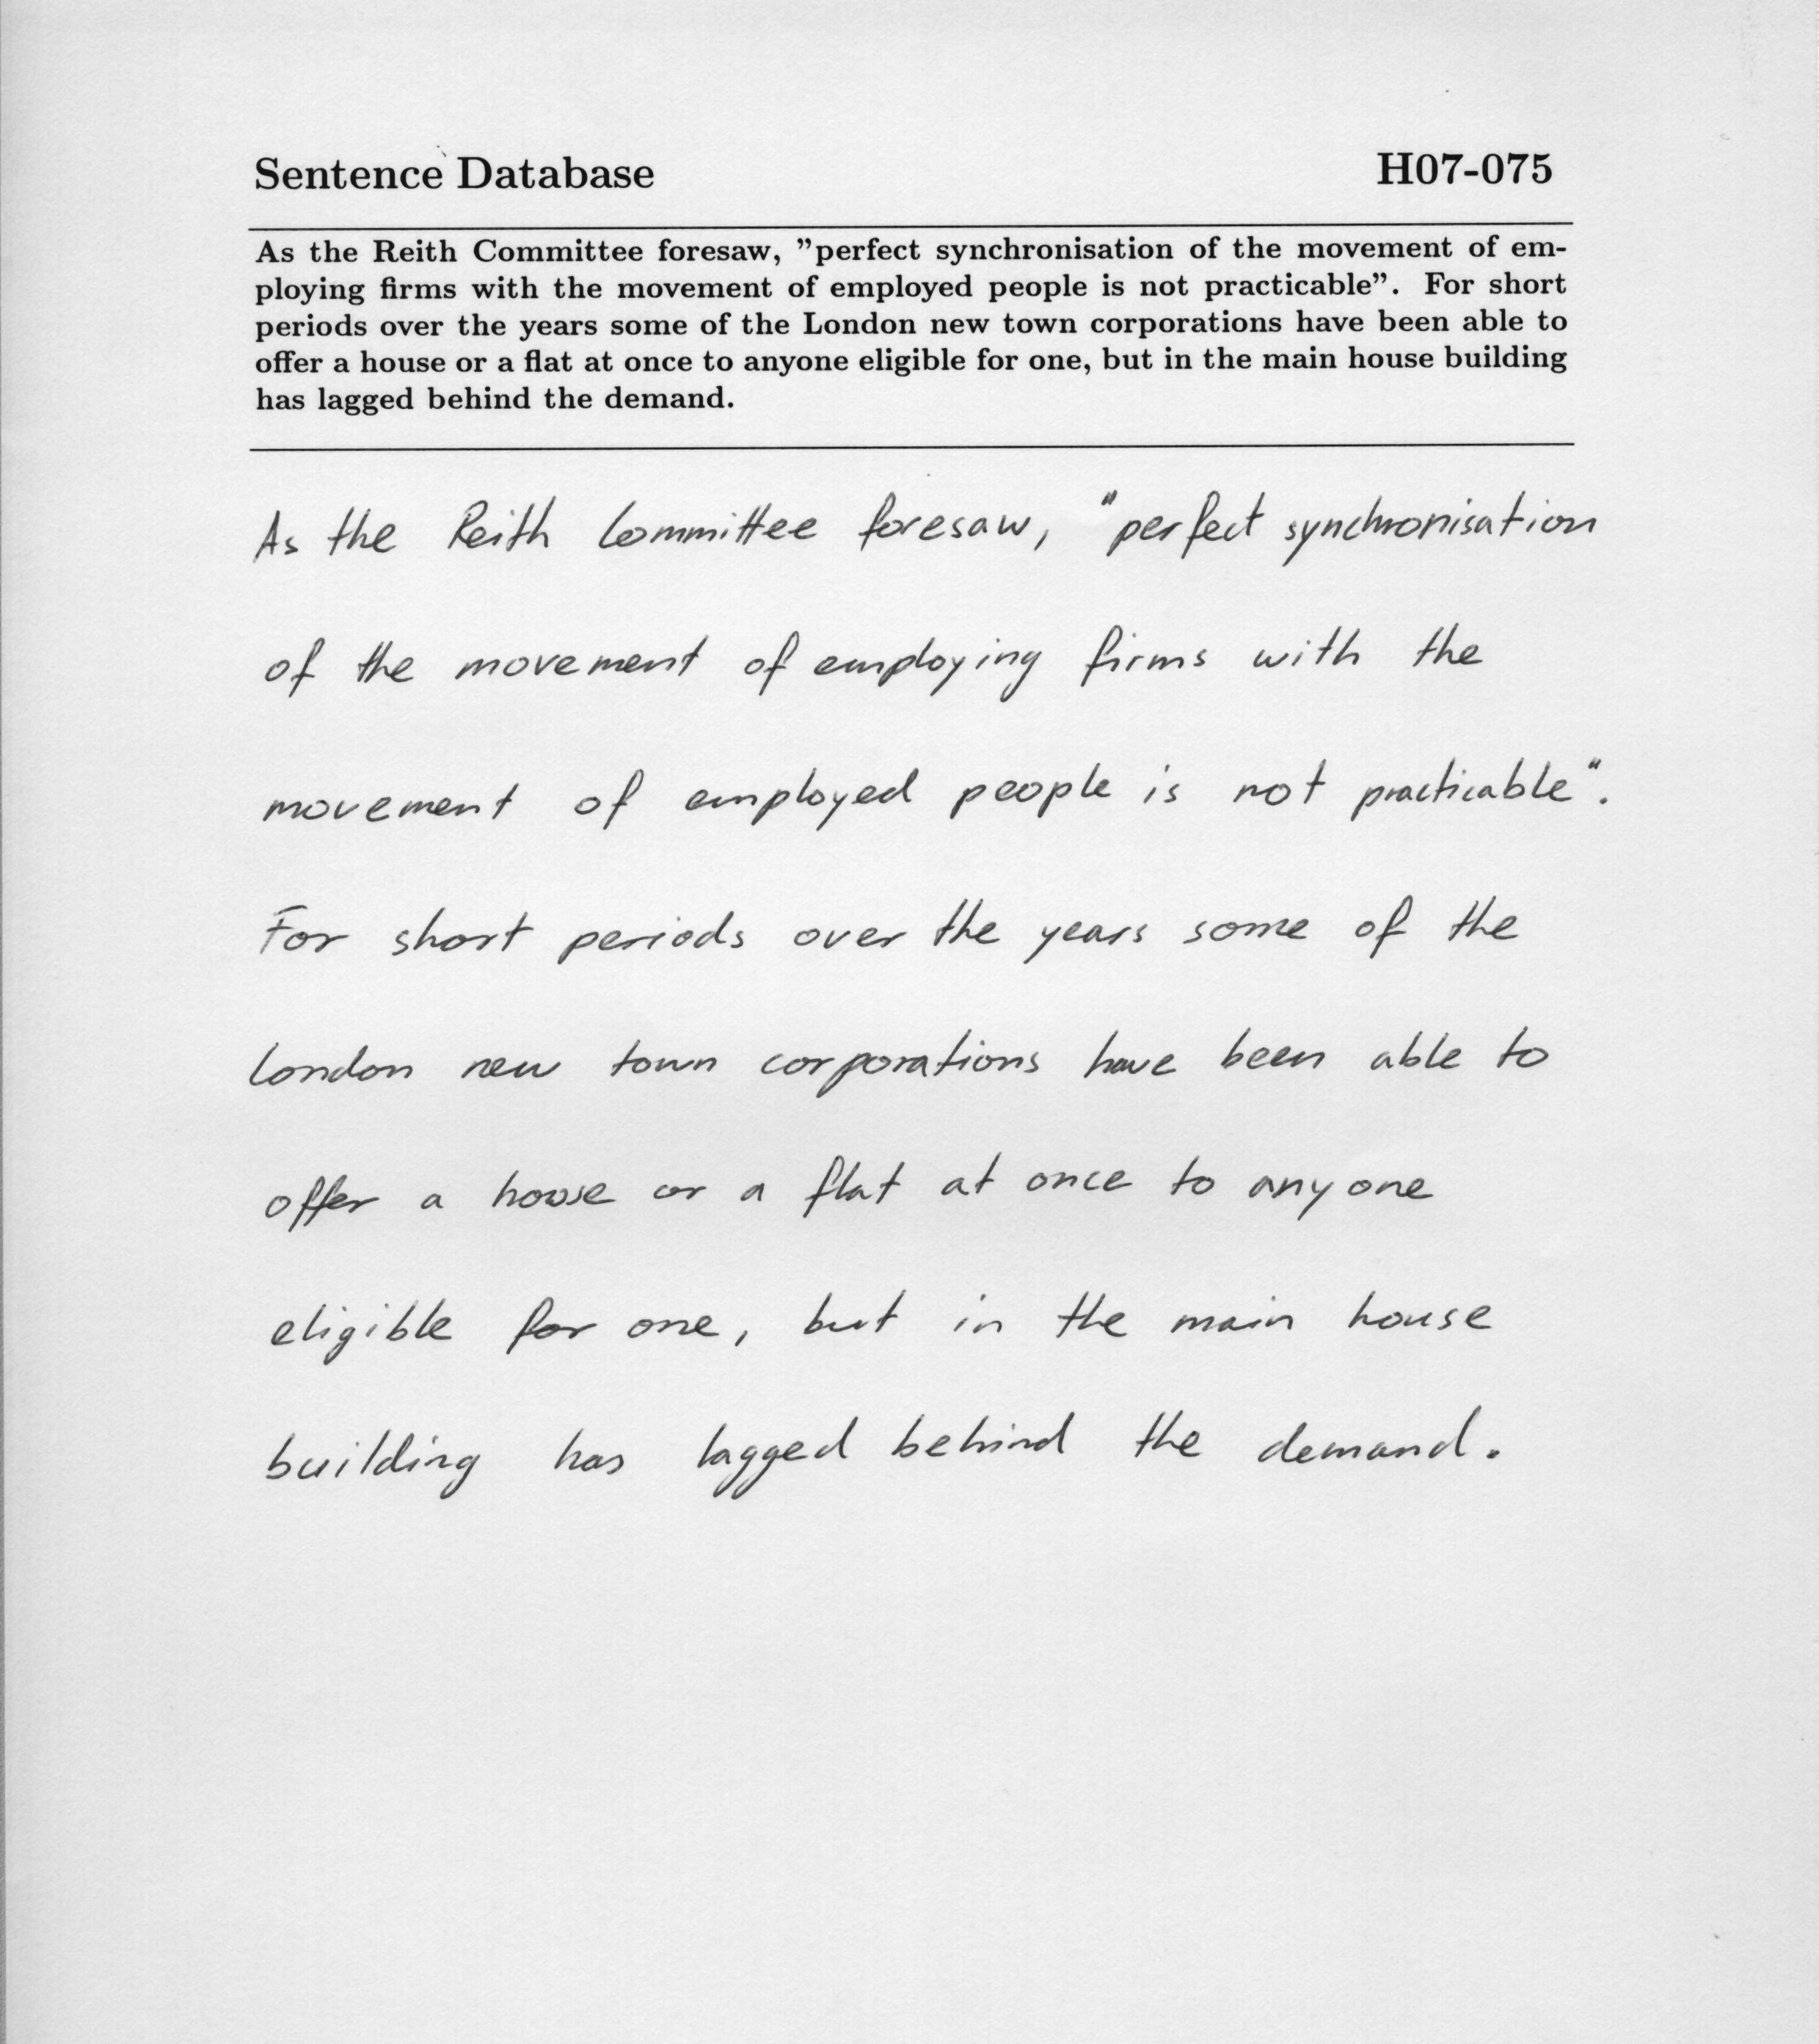 Sentence Database H07-075
As the Reith Committee foresaw, ”perfect synchronisation of the movement of em-
ploying firms with the movement of employed people is not practicable”. For short
periods over the years some of the London new town corporations have been able to
offer a house or a flat at once to anyone eligible for one, but in the main house building
has lagged behind the demand.
As the Reith Committee foresaw, "perfect synchronisation
of the movement of employing firms with the
movement of employed people is not practicable".
For short periods over the years some of the
London new town corporations have been able to
offer a house or a flat at once to anyone
eligible for one, but in the main house
building has lagged behind the demand.